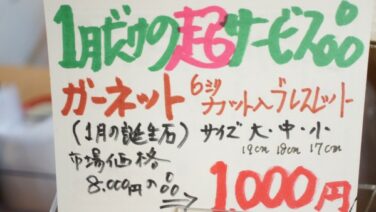 1月だけの超サービス!!
ガーネット 6ジカット入ブレスレット
(1月の誕生石) サイズ 大・中・小
19cm 18cm 17cm
市場価格
8,000円の品
⇒ 1,000円